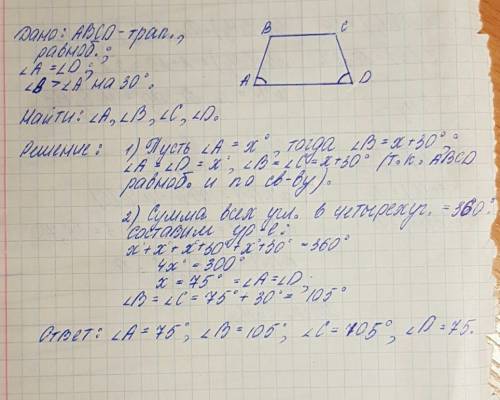 Дано: ABCD - трап.,
равноб.;
∠A = ∠D;
∠B > ∠A на 30°.
Найти: ∠A, ∠B, ∠C, ∠D.
B C
A D
Решение: 1) Пусть ∠A = x°, тогда ∠B = x+30°;
∠A = ∠D = x°, ∠B = ∠C = x+30° (т.к. ABCD
равноб. и по св-ву).
2) Сумма всех угл. в четырехуг. = 360°
составим ур-е:
x+x+x+30°+x+30° = 360°
4x° = 300°
x = 75° = ∠A = ∠D;
∠B = ∠C = 75° + 30° = 105°
Ответ: ∠A = 75°, ∠B = 105°, ∠C = 105°, ∠D = 75.